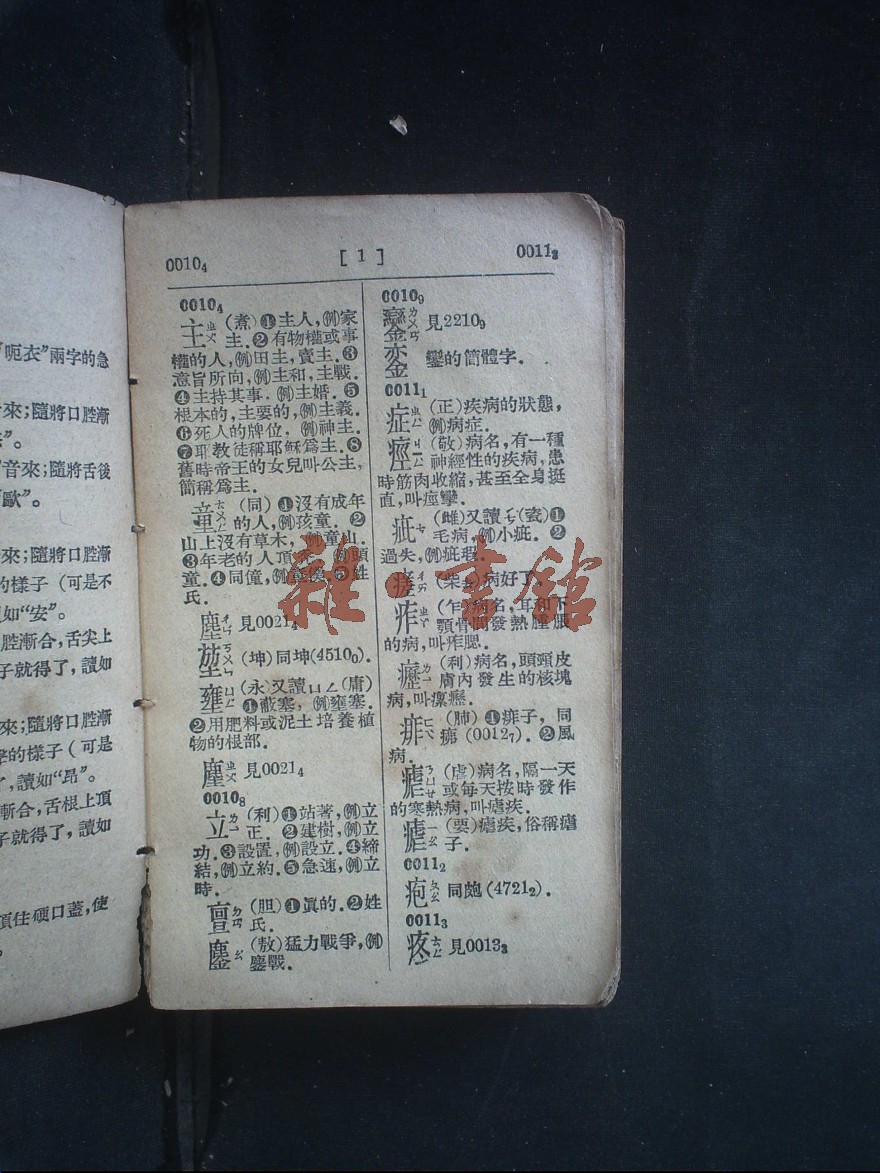 "呃衣"兩字的急
來;隨將口腔漸
"。
音來;隨將舌後
"歐"。
來;隨將口腔漸
的樣子(可是不
如"安"。
腔漸合,舌尖上
子就得了,讀如
來;隨將口腔漸
的樣子(可是
,讀如"昂"。
漸合,舌根上頂
子就得了,讀如
頂住硬口蓋,使
。
0010₄ [1] 0011₃
0010₄
主 ㄓㄨ (煮)❶主人,例家
主.❷有物權或事
權的人,例田主,賣主.❸
意旨所向,例主和,主戰.
❹主持其事.例主婚.❺
根本的,主要的,例主義.
❻死人的牌位.例神主.
❼耶教徒稱耶穌爲主.❽
舊時帝王的女兒叫公主,
簡稱爲主.
童 ㄊㄨㄥ (同)❶沒有成年
的人,例孩童.❷
山上沒有草木,例童山.
❸年老的人頂 例頭
童.❹同僮,例 ❺姓
氏.
塵 ㄔㄣ 見0021₄
堃 ㄎㄨㄣ (坤)同坤(4510₀).
壅 ㄩㄥ (永)又讀ㄩㄥ(庸)
❶蔽塞,例壅塞.
❷用肥料或泥土培養植
物的根部.
見0021₄
0010₈
立 ㄌㄧ (利)❶站著,例立
正.❷建樹,例立
功.❸設置,例設立.❹締
結,例立約.❺急速,例立
時.
亶 ㄉㄢ (胆)❶眞的.❷姓
氏.
鏖 ㄠ (敖)猛力戰爭,例
鏖戰.
0010₉
鑾 ㄌㄨㄢ 見2210₉
銮的簡體字.
0011₁
症 ㄓㄥ (正)疾病的狀態,
例病症.
痙 ㄐㄧㄥ (敬)病名,有一種
神經性的疾病,患
時筋肉收縮,甚至全身挺
直,叫痙攣.
疵 ㄘ (雌)又讀ㄘˊ(瓷)❶
毛病,例小疵.❷
過失,例疵瑕
瘥 ㄔㄞ (柴去)病好了.
痄 ㄓㄚ (乍)病名,耳和下
顎骨間發熱腫脹
的病,叫痄腮.
癧 ㄌㄧ (利)病名,頭頸皮
膚內發生的核塊
病,叫瘰癧.
痱 ㄈㄟ (肺)❶痱子,同
疿(0012₇).❷風
病.
瘧 ㄋㄩㄝ (虐)病名,隔一天
或每天按時發作
的寒熱病,叫瘧疾.
瘧 ㄧㄠ (要)瘧疾,俗稱瘧
子.
0011₂
疱 ㄆㄠ 同皰(4721₂).
0011₃
疼 ㄊㄥ 見0013₃
雜·書館